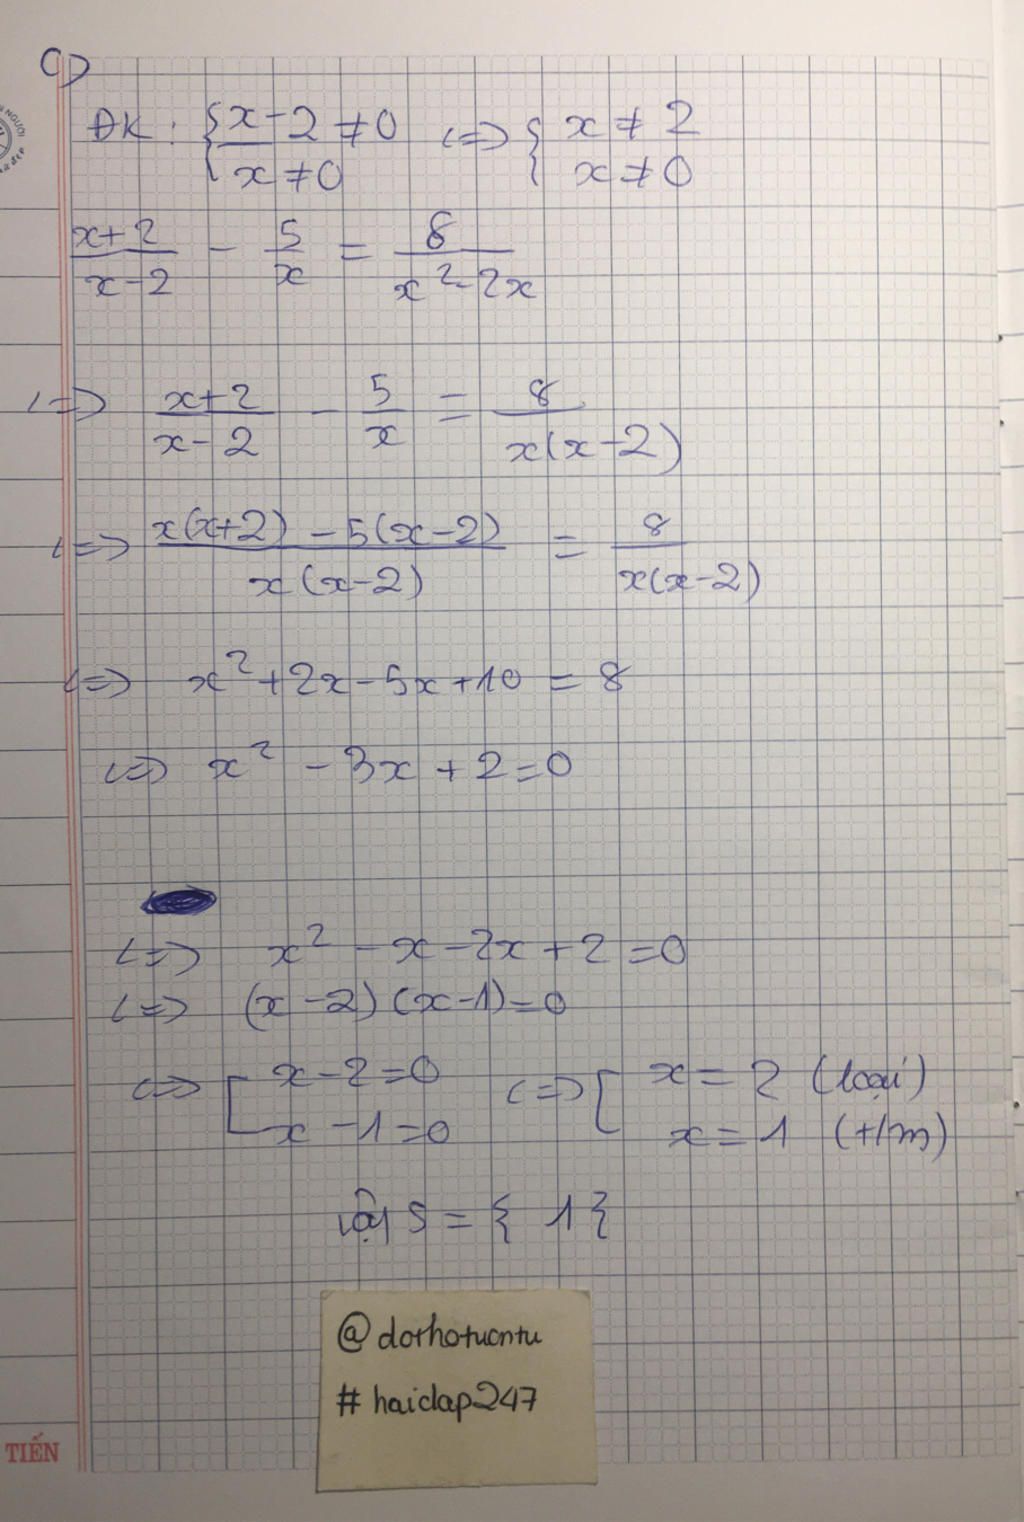 c)
ĐK: { x-2 ≠ 0 <=> { x ≠ 2
x ≠ 0 x ≠ 0
x+2/x-2 - 5/x = 8/x²-2x
<=> x+2/x-2 - 5/x = 8/x(x-2)
<=> x(x+2) - 5(x-2)/x(x-2) = 8/x(x-2)
<=> x² + 2x - 5x + 10 = 8
<=> x² - 3x + 2 = 0
<=> x² - x - 2x + 2 = 0
<=> (x-2)(x-1) = 0
<=> [ x-2=0 <=> [ x = 2 (loại)
x-1=0 x = 1 (t/m)
vậy S = { 1 }
@dorhotuontu
#haidap247
TIẾN